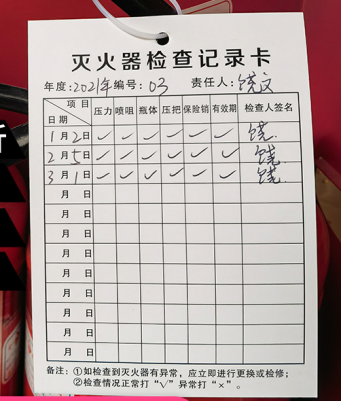 灭火器检查记录卡
年度:2021年 编号:03 责任人:饶文
项目 日期 压力 喷咀 瓶体 压把 保险销 有效期 检查人签名
1月2日 ✓ ✓ ✓ ✓ ✓ ✓ 饶
2月5日 ✓ ✓ ✓ ✓ ✓ ✓ 饶
3月1日 ✓ ✓ ✓ ✓ ✓ ✓ 饶
月 日
月 日
月 日
月 日
月 日
月 日
月 日
月 日
月 日
备注:①如检查到灭火器有异常,应立即进行更换或检修;
②检查情况正常打“√”异常打“×”。